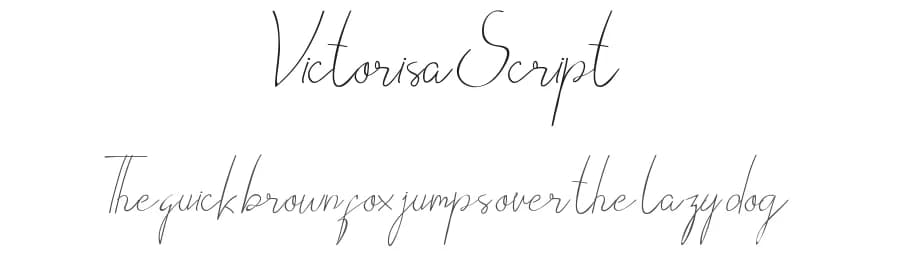 Victorisa Script
The quick brown fox jumps over the lazy dog